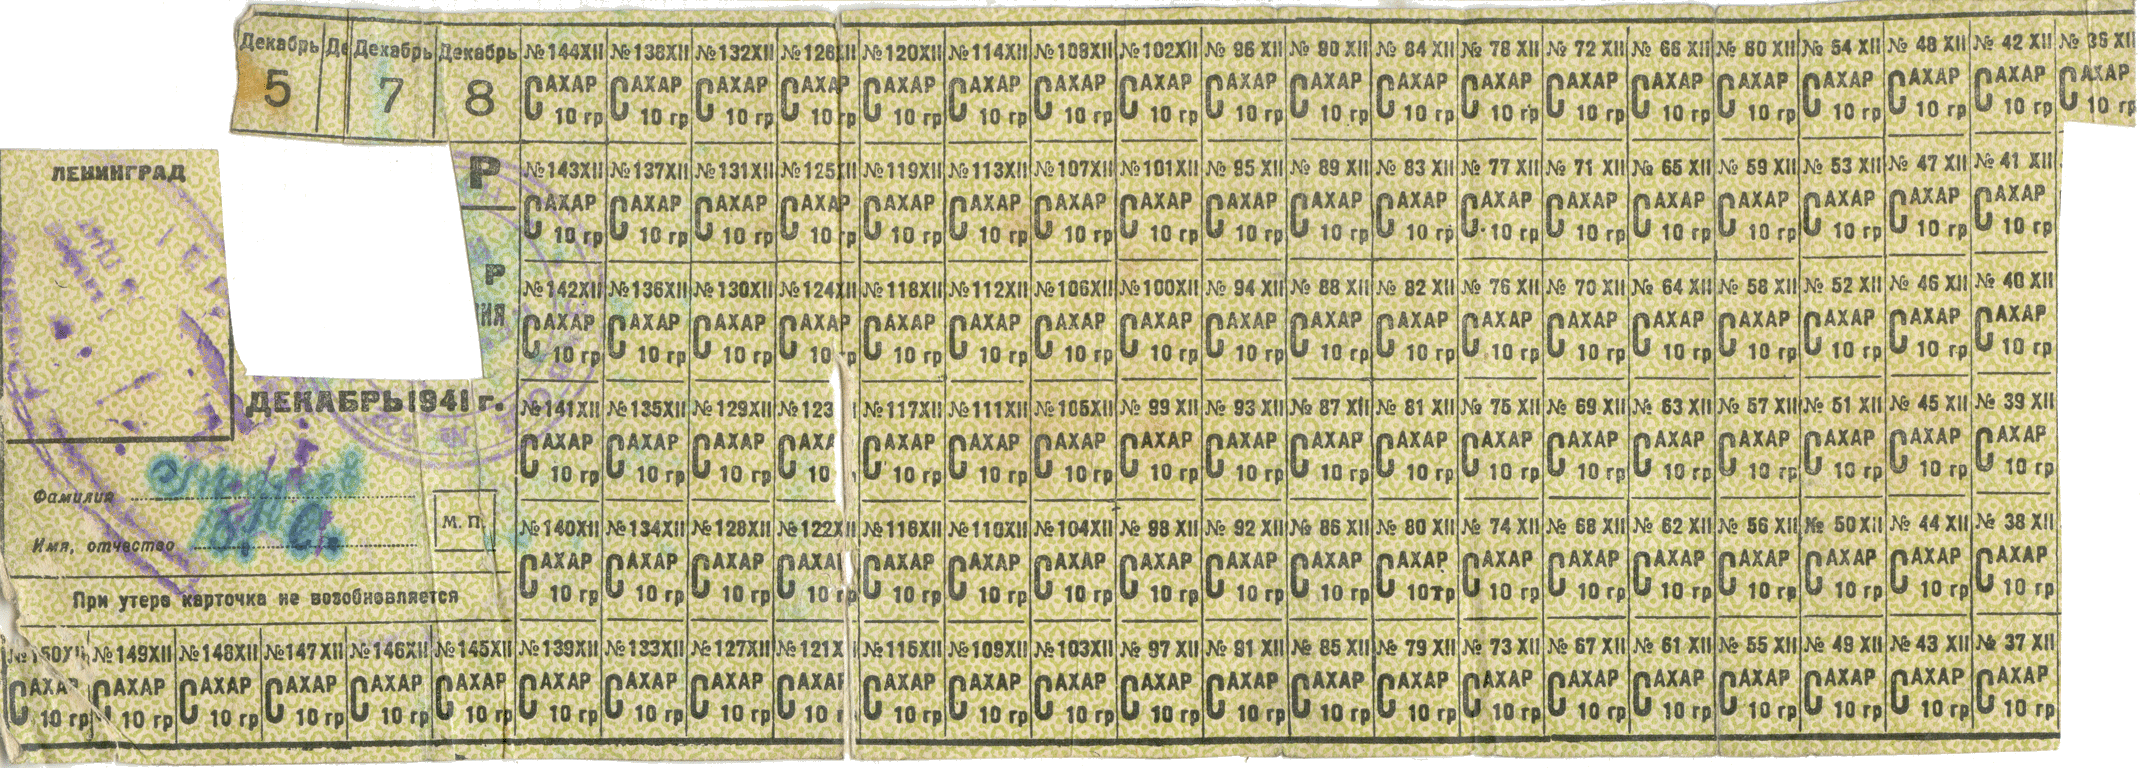 Декабрь Де Декабрь Декабрь №144XII №138XII №132XII №126XII №120XII №114XII №108XII №102XII № 96 XII № 90 XII № 84 XII № 78 XII № 72 XII № 66 XII № 60 XII № 54 XII № 48 XII № 42 XII № 36 XII
5 7 8 САХАР САХАР САХАР САХАР САХАР САХАР САХАР САХАР САХАР САХАР САХАР САХАР САХАР САХАР САХАР САХАР САХАР САХАР САХАР
10 гр 10 гр 10 гр 10 гр 10 гр 10 гр 10 гр 10 гр 10 гр 10 гр 10 гр 10 гр 10 гр 10 гр 10 гр 10 гр 10 гр 10 гр 10 гр
ЛЕНИНГРАД Р №143XII №137XII №131XII №125XII №119XII №113XII №107XII №101XII № 95 XII № 89 XII № 83 XII № 77 XII № 71 XII № 65 XII № 59 XII № 53 XII № 47 XII № 41 XII
САХАР САХАР САХАР САХАР САХАР САХАР САХАР САХАР САХАР САХАР САХАР САХАР САХАР САХАР САХАР САХАР САХАР САХАР
10 гр 10 гр 10 гр 10 гр 10 гр 10 гр 10 гр 10 гр 10 гр 10 гр 10 гр 10 гр 10 гр 10 гр 10 гр 10 гр 10 гр 10 гр
Р №142XII №136XII №130XII №124XII №118XII №112XII №106XII №100XII № 94 XII № 88 XII № 82 XII № 76 XII № 70 XII № 64 XII № 58 XII № 52 XII № 46 XII № 40 XII
НИЯ САХАР САХАР САХАР САХАР САХАР САХАР САХАР САХАР САХАР САХАР САХАР САХАР САХАР САХАР САХАР САХАР САХАР САХАР
10 гр 10 гр 10 гр 10 гр 10 гр 10 гр 10 гр 10 гр 10 гр 10 гр 10 гр 10 гр 10 гр 10 гр 10 гр 10 гр 10 гр 10 гр
ДЕКАБРЬ 1941 г. №141XII №135XII №129XII №123 №117XII №111XII №105XII № 99 XII № 93 XII № 87 XII № 81 XII № 75 XII № 69 XII № 63 XII № 57 XII № 51 XII № 45 XII № 39 XII
САХАР САХАР САХАР САХА САХАР САХАР САХАР САХАР САХАР САХАР САХАР САХАР САХАР САХАР САХАР САХАР САХАР САХАР
10 гр 10 гр 10 гр 10 10 гр 10 гр 10 гр 10 гр 10 гр 10 гр 10 гр 10 гр 10 гр 10 гр 10 гр 10 гр 10 гр 10 гр
Фамилия
М. П. №140XII №134XII №128XII №122XII №116XII №110XII №104XII № 98 XII № 92 XII № 86 XII № 80 XII № 74 XII № 68 XII № 62 XII № 56 XII № 50 XII № 44 XII № 38 XII
Имя, отчество САХАР САХАР САХАР САХАР САХАР САХАР САХАР САХАР САХАР САХАР САХАР САХАР САХАР САХАР САХАР САХАР САХАР САХАР
При утере карточка не возобновляется 10 гр 10 гр 10 гр 10 гр 10 гр 10 гр 10 гр 10 гр 10 гр 10 гр 10 гр 10 гр 10 гр 10 гр 10 гр 10 гр 10 гр 10 гр
№150XII №149XII №148XII №147XII №146XII №145XII №139XII №133XII №127XII №121X №115XII №109XII №103XII № 97 XII № 91 XII № 85 XII № 79 XII № 73 XII № 67 XII № 61 XII № 55 XII № 49 XII № 43 XII № 37 XII
САХАР САХАР САХАР САХАР САХАР САХАР САХАР САХАР САХАР САХАР САХАР САХАР САХАР САХАР САХАР САХАР САХАР САХАР САХАР САХАР САХАР САХАР САХАР САХАР
10 гр 10 гр 10 гр 10 гр 10 гр 10 гр 10 гр 10 гр 10 гр 10 г 10 гр 10 гр 10 гр 10 гр 10 гр 10 гр 10 гр 10 гр 10 гр 10 гр 10 гр 10 гр 10 гр 10 гр